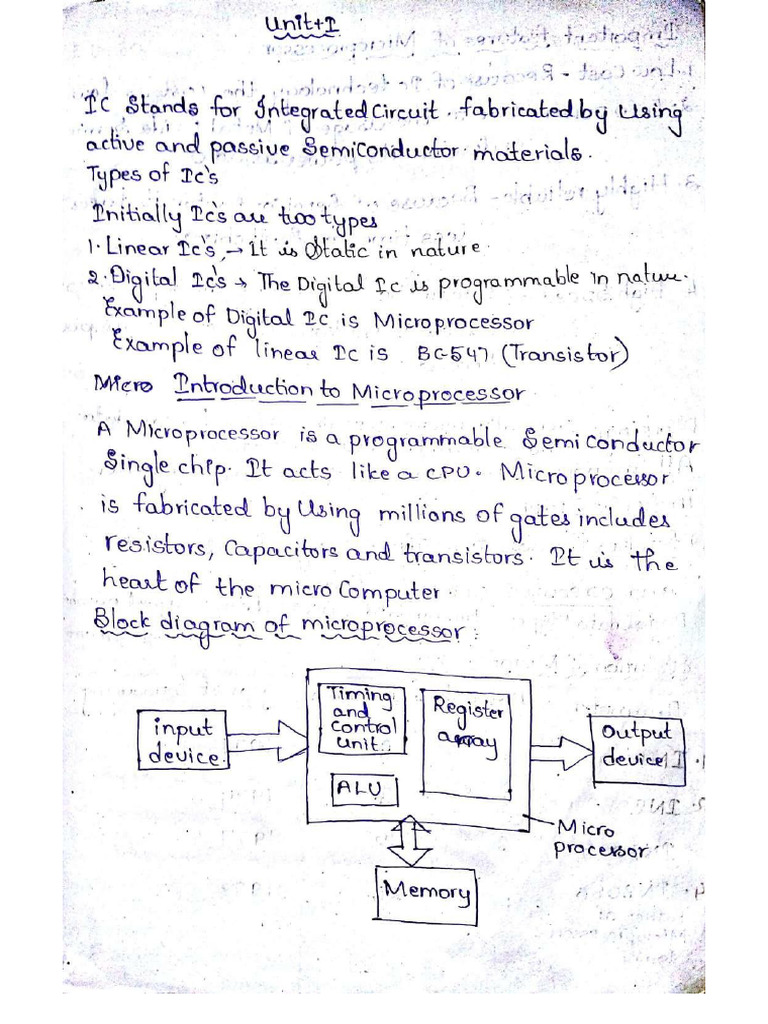 Unit+I
IC Stands for Integrated Circuit. fabricated by Using
active and passive Semiconductor materials.
Types of IC's
Initially IC's are two types
1. Linear IC's → It is Static in nature.
2. Digital IC's → The Digital IC is programmable in nature.
Example of Digital IC is Microprocessor
Example of linear IC is BC-547 (Transistor)
Micro Introduction to Microprocessor
A Microprocessor is a programmable Semi conductor
Single chip. It acts like a CPU. Microprocessor
is fabricated by Using millions of gates includes
resistors, Capacitors and transistors. It is the
heart of the micro Computer
Block diagram of microprocessor:
input
device.
Timing
and
Control
Unit
ALU
Register
array
Output
device
Micro
processor
Memory